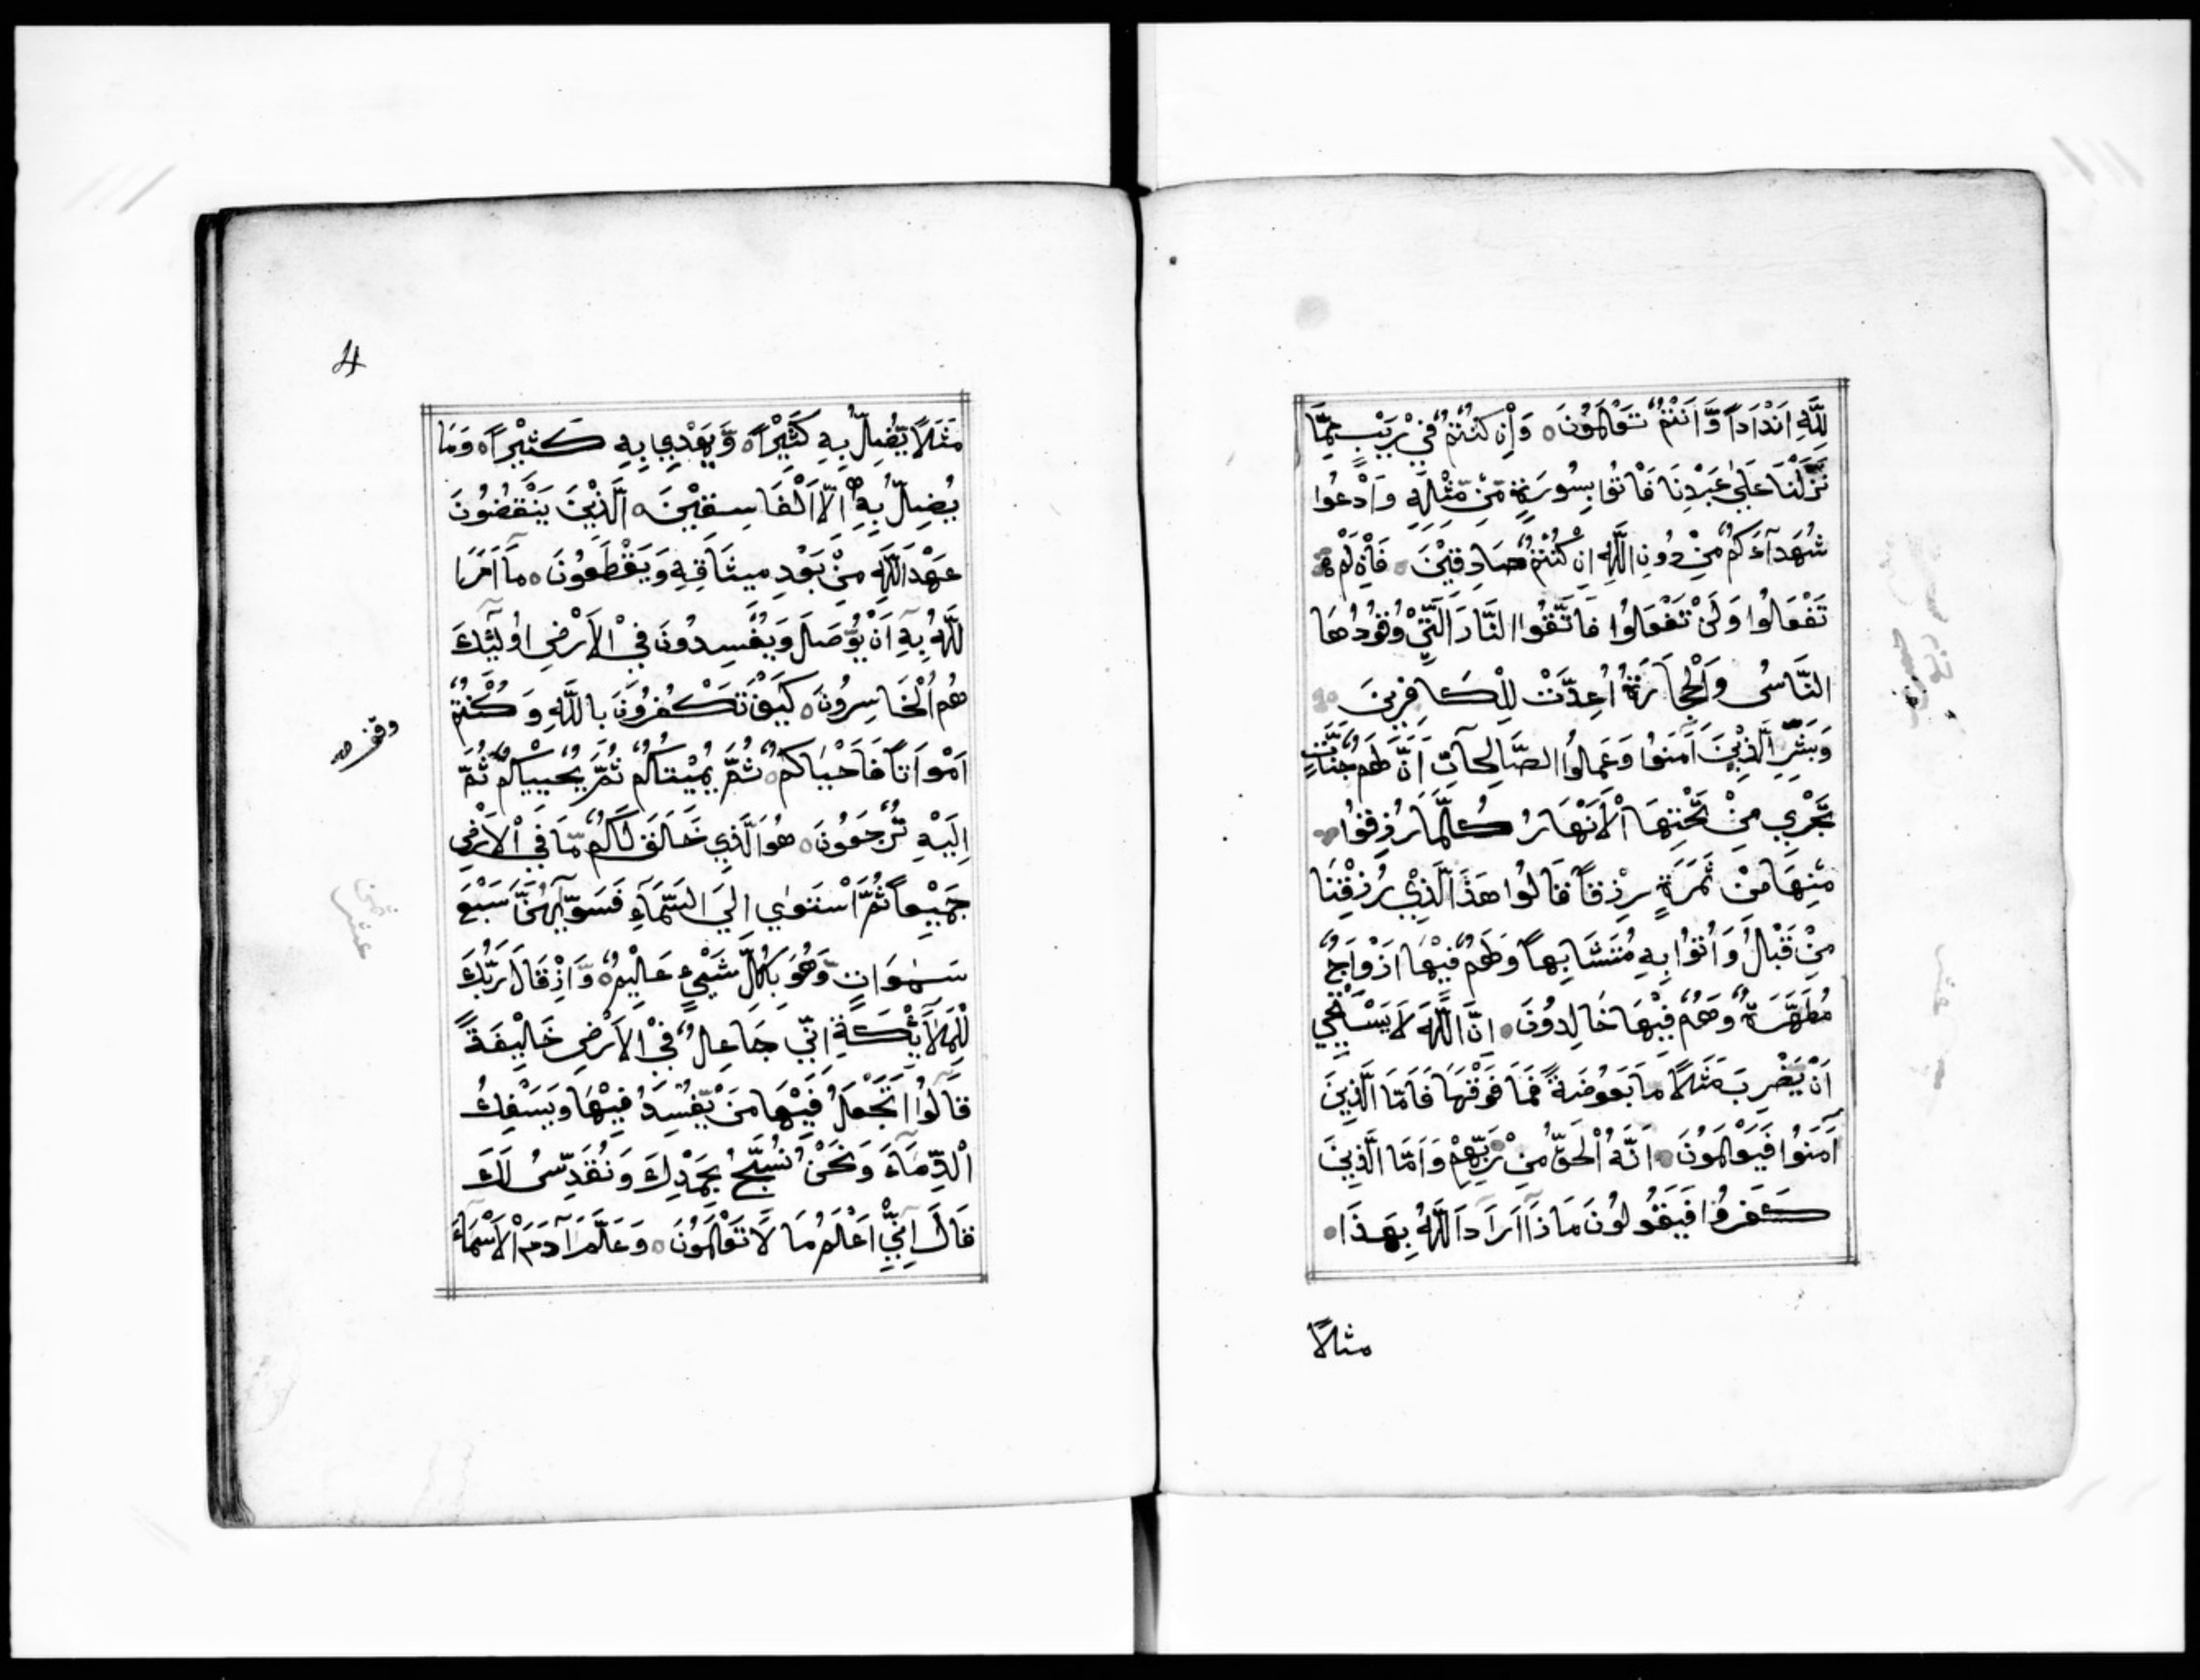 لِلَّهِ اَنْدَاداً وَّاَنْتُمْ تَعْلَمُوْنَ ۝ وَاِنْ كُنْتُمْ فِيْ رَيْبٍ مِمَّا
نَزَّلْنَا عَلَىٰ عَبْدِنَا فَاْتُوا بِسُورَةٍ مِّنْ مِّثْلِهٖ وَادْعُوا
شُهَدَآءَكُمْ مِنْ دُونِ اللَّهِ اِنْ كُنْتُمْ صَادِقِيْنَ ۝ فَاِنْ لَمْ
تَفْعَلُوْا وَلَنْ تَفْعَلُوْا فَاتَّقُوا النَّارَ الَّتِيْ وَقُوْدُهَا
النَّاسُ وَالْحِجَارَةُ اُعِدَّتْ لِلْكَافِرِينَ ۝
وَبَشِّرِ الَّذِيْنَ آمَنُوْا وَعَمِلُوا الصَّالِحَاتِ اَنَّ لَهُمْ جَنَّاتٍ
تَجْرِي مِنْ تَحْتِهَا الْاَنْهَارُ كُلَّمَا رُزِقُوْا
مِنْهَا مِنْ ثَمَرَةٍ رِزْقاً قَالُوْا هَذَا الَّذِيْ رُزِقْنَا
مِنْ قَبْلُ وَاُتُوْا بِهِ مُتَشَابِهاً وَلَهُمْ فِيْهَا اَزْوَاجٌ
مُطَهَّرَةٌ وَهُمْ فِيْهَا خَالِدُوْنَ ۝ اِنَّ اللَّهَ لَا يَسْتَحْيِي
اَنْ يَضْرِبَ مَثَلًا مَّا بَعُوضَةً فَمَا فَوْقَهَا فَاَمَّا الَّذِينَ
آمَنُوْا فَيَعْلَمُوْنَ ۝ اَنَّهُ الْحَقُّ مِنْ رَبِّهِمْ وَاَمَّا الَّذِينَ
كَفَرُوْا فَيَقُولُوْنَ مَاذَا اَرَادَ اللَّهُ بِهَذَا ۝
مثلاً
4
مَثَلًا يُّضِلُّ بِهِ كَثِيْراً ۝ وَّيَهْدِي بِهِ كَثِيْراً ۝ وَمَا
يُضِلُّ بِهِ اِلَّا الْفَاسِقِيْنَ ۝ الَّذِيْنَ يَنْقُضُوْنَ
عَهْدَ اللَّهِ مِنْ بَعْدِ مِيثَاقِهِ وَيَقْطَعُوْنَ ۝ مَا اَمَرَ ا
للَّهُ بِهِ اَنْ يُّوْصَلَ وَيُفْسِدُونَ فِيْ الْاَرْضِ اُولٰئِكَ
هُمُ الْخَاسِرُوْنَ ۝ كَيْفَ تَكْفُرُوْنَ بِاللَّهِ وَكُنْتُمْ
اَمْوَاتاً فَاَحْيَاكُمْ ثُمَّ يُمِيْتُكُمْ ثُمَّ يُحْيِيْكُمْ ثُمَّ
اِلَيْهِ تُرْجَعُوْنَ ۝ هُوَ الَّذِي خَلَقَ لَكُمْ مَّا فِي الْاَرْضِ
جَمِيْعاً ثُمَّ اسْتَوٰي اِلَي السَّمَآءِ فَسَوّٰيهُنَّ سَبْعَ
سَمٰوَاتٍ وَّهُوَ بِكُلِّ شَيْءٍ عَلِيْمٌ ۝ وَاِذْ قَالَ رَبُّكَ
لِلْمَلَآئِكَةِ اِنِّي جَاعِلٌ فِيْ الْاَرْضِ خَلِيْفَةً
قَالُوْا اَتَجْعَلُ فِيْهَا مَنْ يُّفْسِدُ فِيْهَا وَيَسْفِكُ
الْدِّمَآءَ وَنَحْنُ نُسَبِّحُ بِحَمْدِكَ وَنُقَدِّسُ لَكَ
قَالَ اِنِّيْ اَعْلَمُ مَا لَا تَعْلَمُوْنَ ۝ وَعَلَّمَ آدَمَ الْاَسْمَآءَ